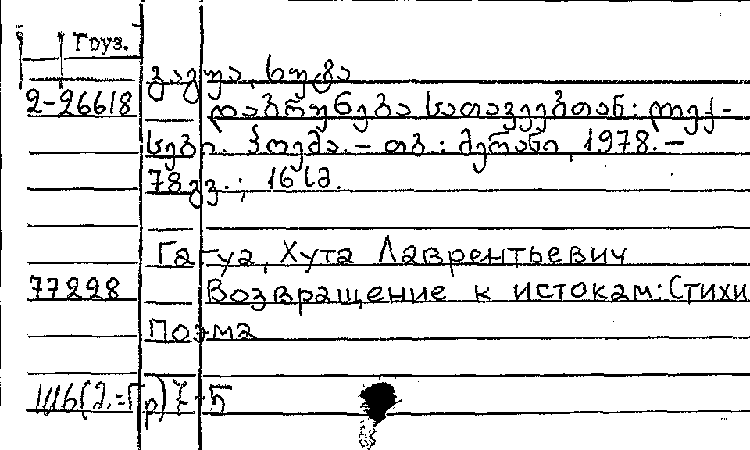 Груз.
გაგუა, ხუტა
2-26618 დაბრუნება სათავეებთან: ლექ-
სები. პოემა. – თბ.: მერანი, 1978. –
78 გვ.; 16 სმ.
Гагуа, Хута Лаврентьевич
77298 Возвращение к истокам: Стихи
Поэма